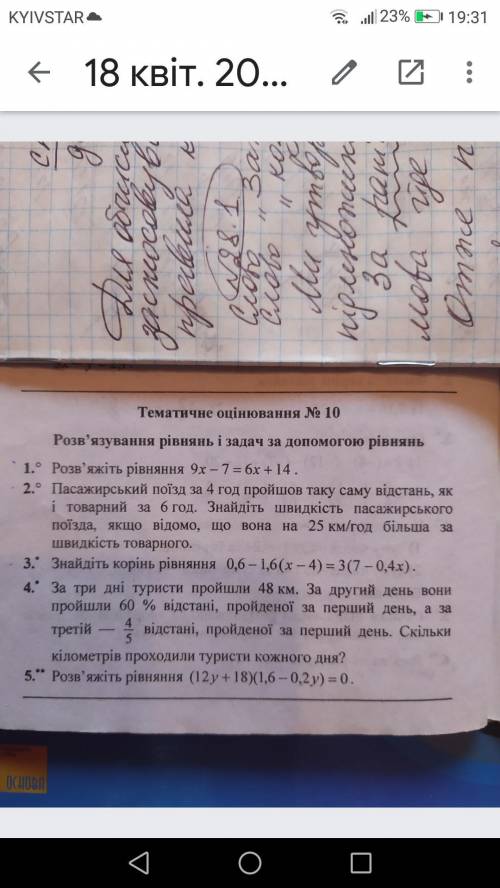 KYIVSTAR 23% 19:31
18 квіт. 20...
Для
застосовув
правила
№28.1
слово " За
слово " ко
Ми утвор
За
мова где
Отже п
Тематичне оцінювання № 10
Розв’язування рівнянь і задач за допомогою рівнянь
1.° Розв’яжіть рівняння 9x – 7 = 6x + 14 .
2.° Пасажирський поїзд за 4 год пройшов таку саму відстань, як
і товарний за 6 год. Знайдіть швидкість пасажирського
поїзда, якщо відомо, що вона на 25 км/год більша за
швидкість товарного.
3.• Знайдіть корінь рівняння 0,6 – 1,6(x – 4) = 3(7 – 0,4x) .
4.• За три дні туристи пройшли 48 км. За другий день вони
пройшли 60 % відстані, пройденої за перший день, а за
третій — 4/5 відстані, пройденої за перший день. Скільки
кілометрів проходили туристи кожного дня?
5.•• Розв’яжіть рівняння (12y + 18)(1,6 – 0,2y) = 0 .
ОСНОВА